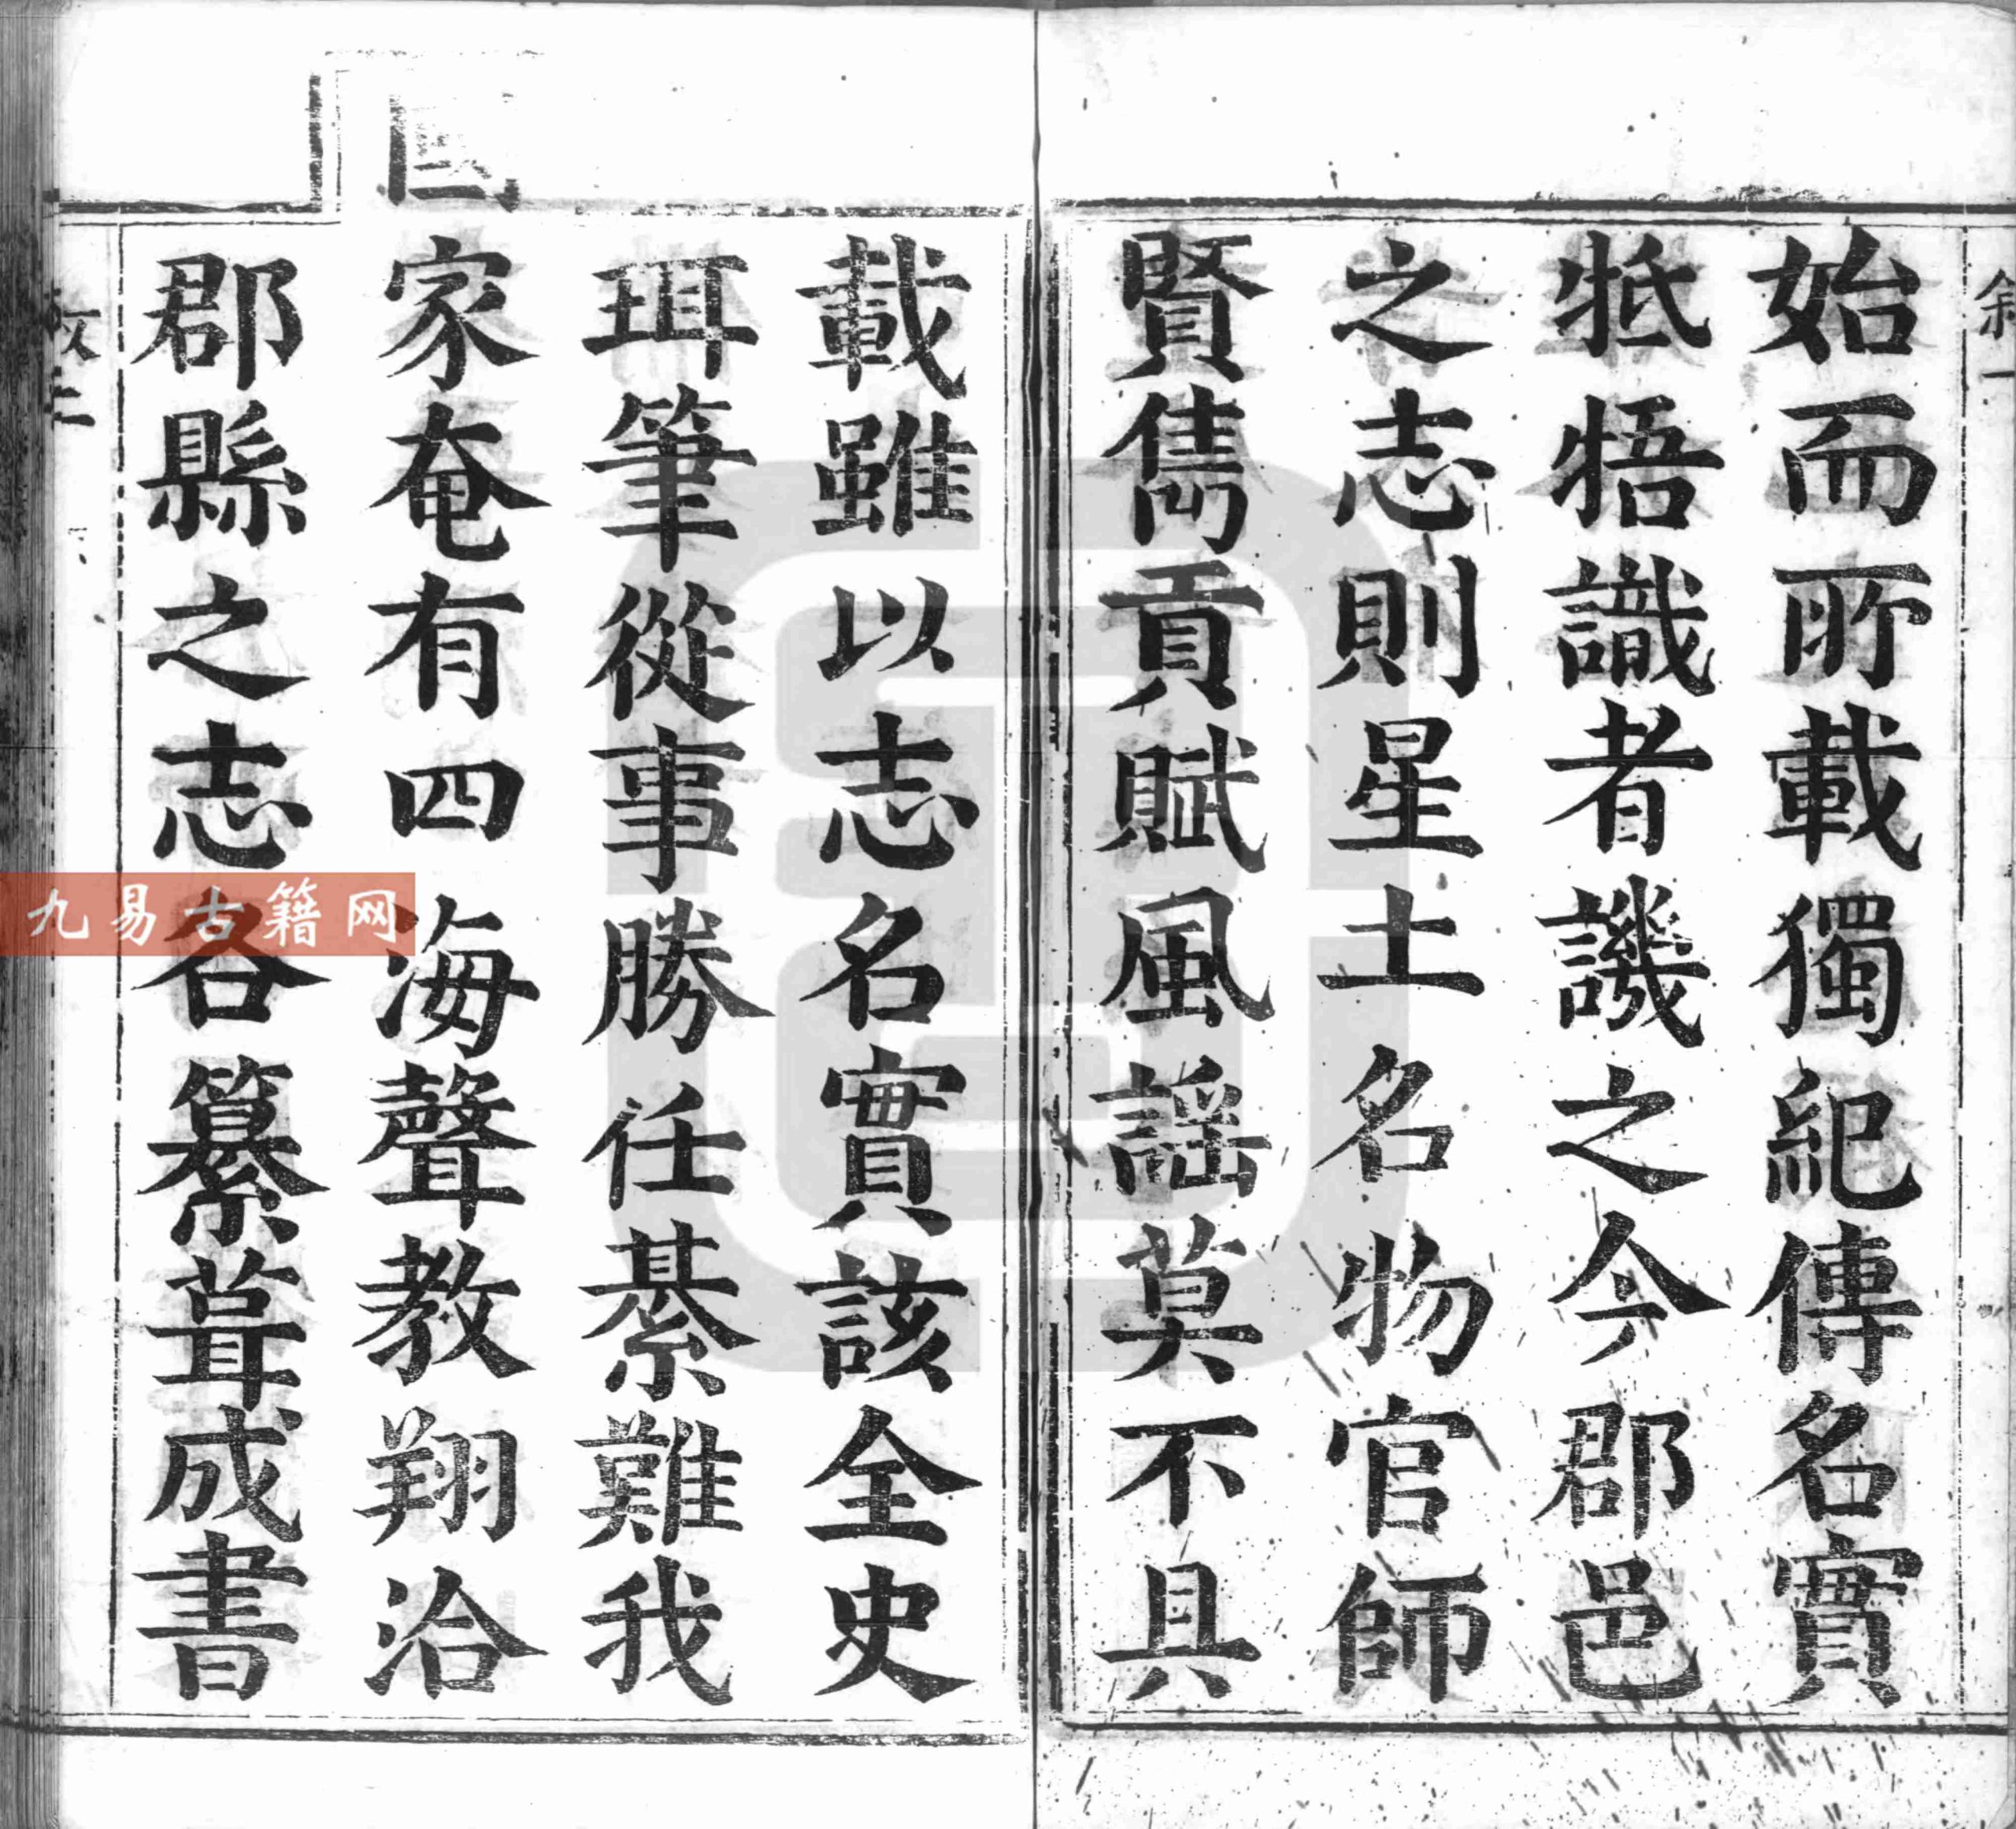 叙一
始而所載獨紀傳名實
牴牾識者譏之今郡邑
之志則星土名物官師
賢雋貢賦風謡莫不具
載雖以志名實該全史
珥筆從事勝任綦難我
國家奄有四海聲教翔洽
郡縣之志各纂葺成書
九易古籍网